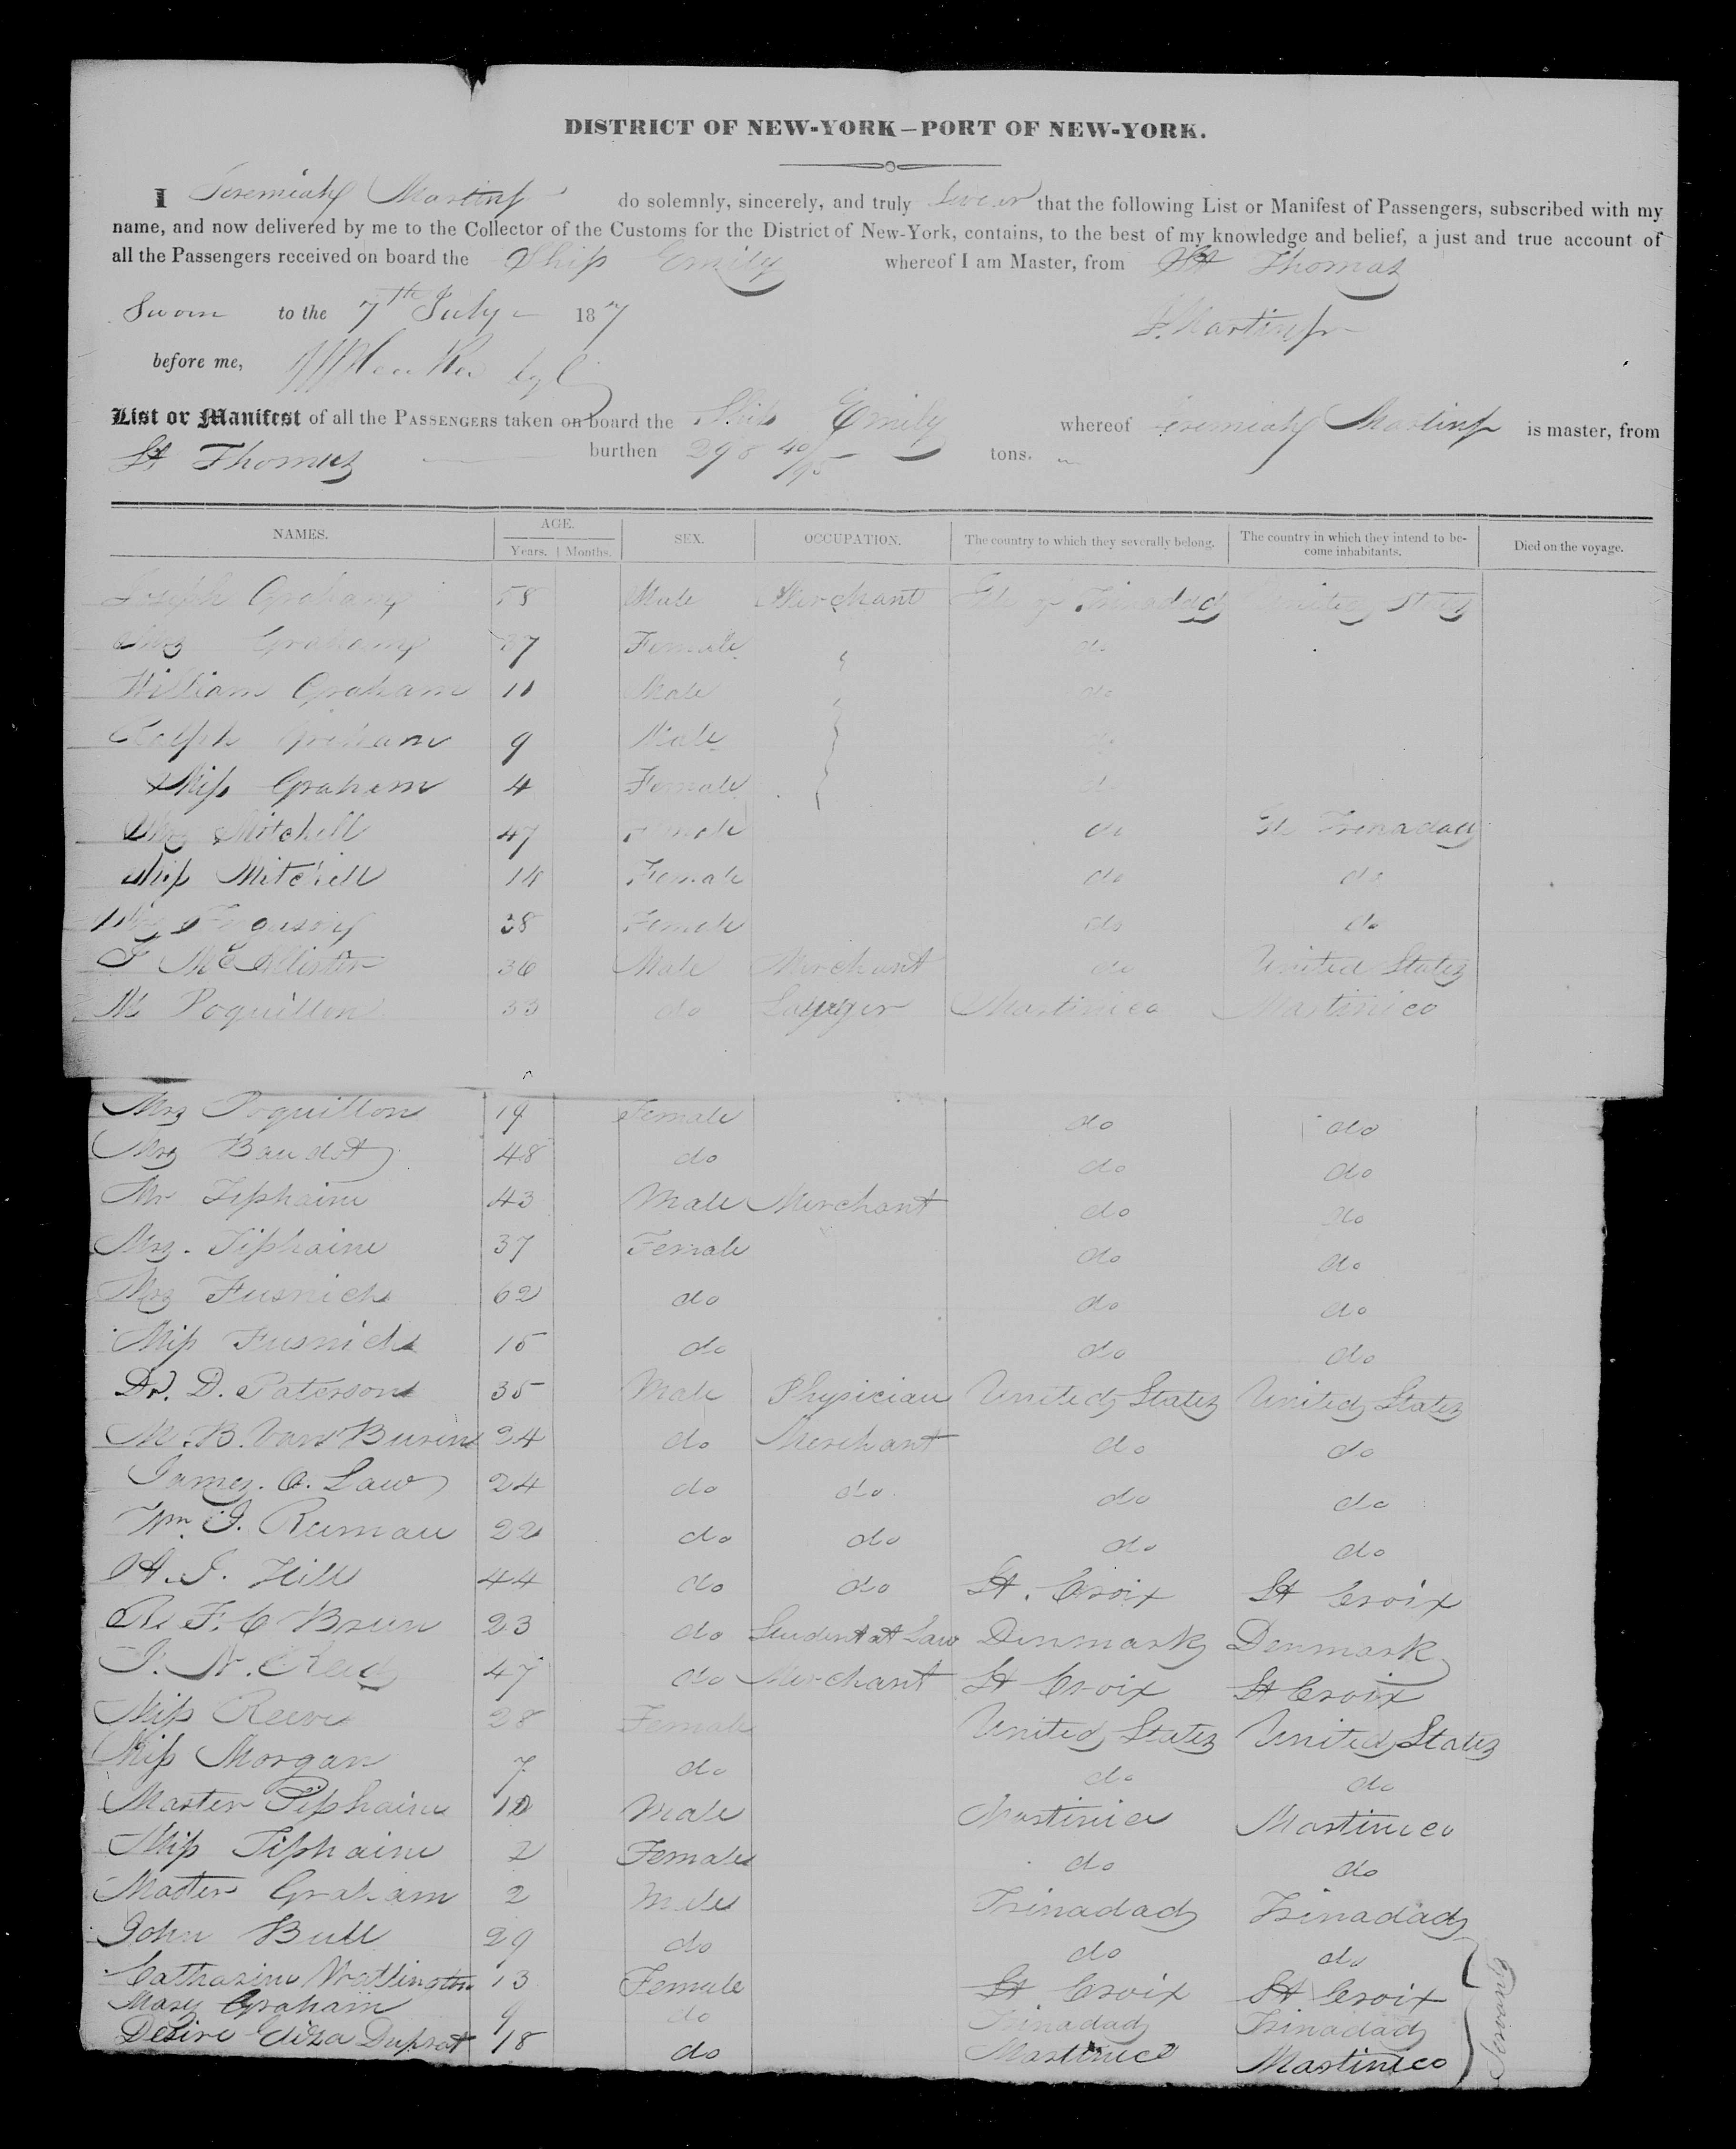 DISTRICT OF NEW-YORK—PORT OF NEW-YORK.
I Jeremiah Martin do solemnly, sincerely, and truly Swear that the following List or Manifest of Passengers, subscribed with my
name, and now delivered by me to the Collector of the Customs for the District of New-York, contains, to the best of my knowledge and belief, a just and true account of
all the Passengers received on board the Ship Emily whereof I am Master, from St Thomas
Sworn to the 7th July 18 7 J. Martin
before me,
List or Manifest of all the PASSENGERS taken on board the Ship Emily whereof Jeremiah Martin is master, from
St Thomas burthen 298 40/95 tons.
NAMES. AGE. Years. Months. SEX. OCCUPATION. The country to which they severally belong. The country in which they intend to become inhabitants. Died on the voyage.
Joseph Graham 58 Male Merchant Trinadad United States
Mrs Graham 37 Female do
William Graham 11 Male do
Ralph Graham 9 Male
Miss Graham 4 Female
Mrs Mitchell 47 Female do Trinadad
Miss Mitchell 14 Female do do
Mrs Ferguson 38 Female do do
J McAllister 36 Male Merchant do United States
M Poquillon 33 do Lawyer Martinico Martinico
Mrs Poquillon 19 Female do do
Mrs Baudot 48 do do do
Mr Tiphaine 43 Male Merchant do do
Mrs. Tiphaine 37 Female do do
Mrs Fusnich 62 do do do
Miss Fusnich 15 do do do
Dr. D. Paterson 35 Male Physician United States United States
M. B. Van Buren 24 do Merchant do do
James. O. Law 24 do do do do
Wm. J. Reeman 22 do do do do
H. J. Hill 44 do do St. Croix St Croix
R. F. C Brun 23 do Student at Law Denmark Denmark
J. N. Reed 47 do Merchant St Croix St Croix
Miss Reeve 28 Female United States United States
Miss Morgan 7 do do do
Master Tiphaine 10 Male Martinico Martinico
Miss Tiphaine 2 Female do do
Master Graham 2 Male Trinadad Trinadad
John Bull 29 do do do
Catharine Watlington 13 Female St Croix St Croix
Mary Graham 9 do Trinadad Trinadad
Desire Eliza Duprat 18 do Martinico Martinico
Servants